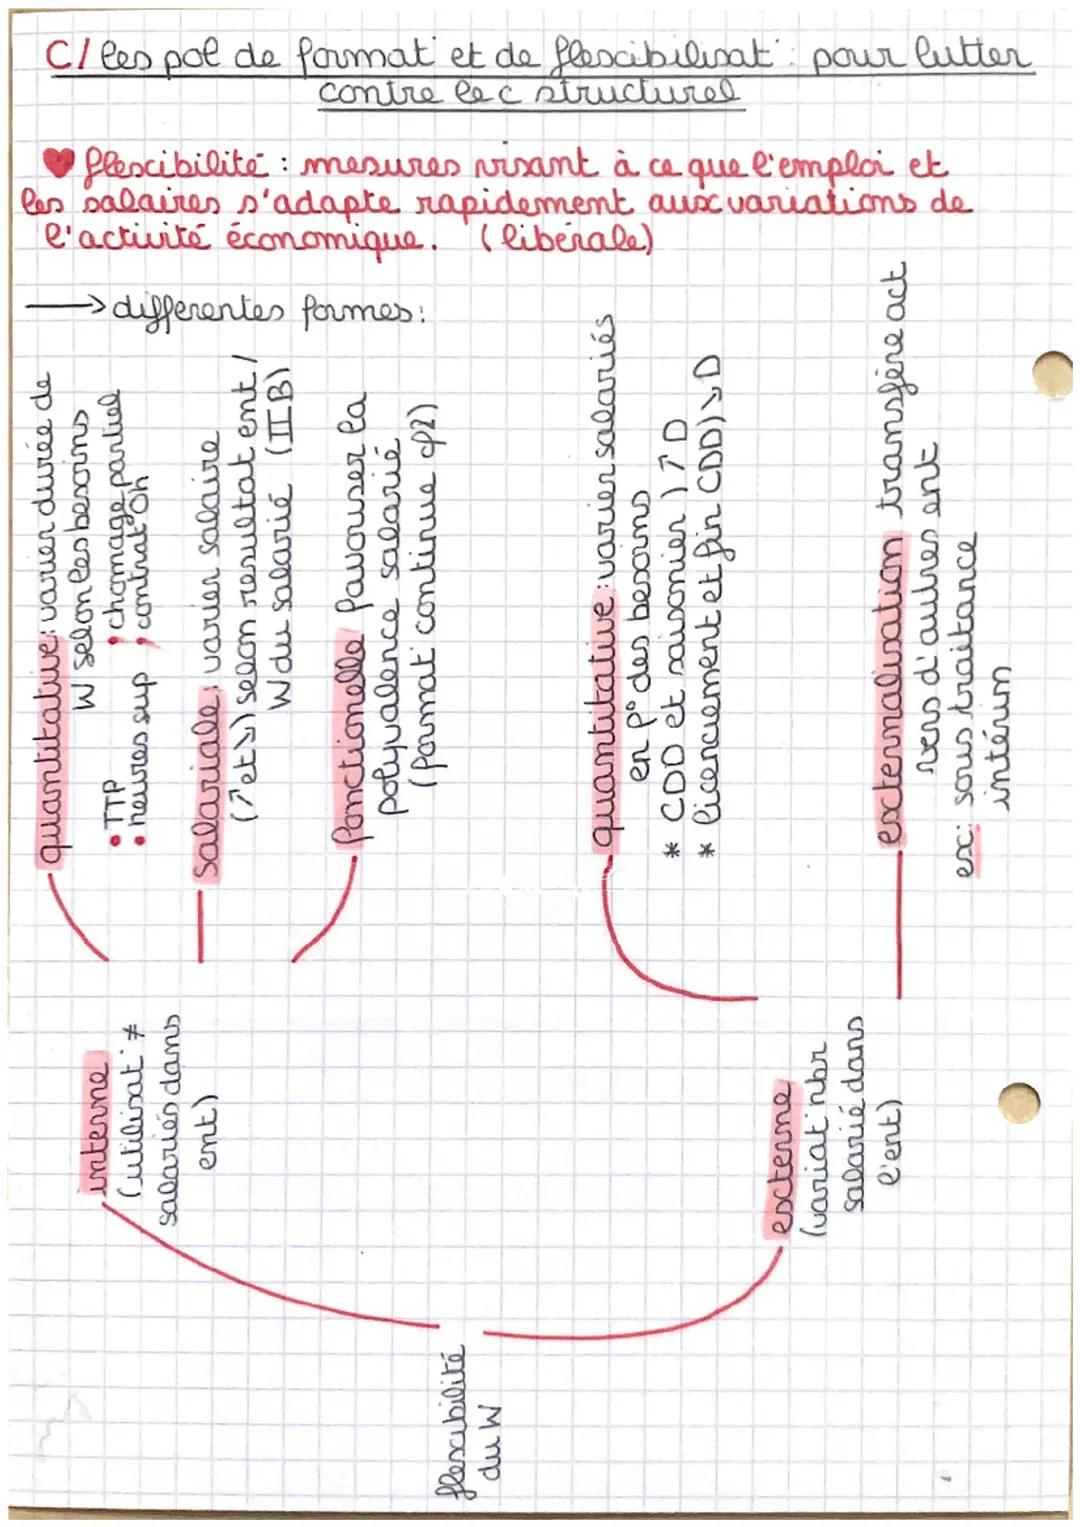 C/ les pol de format° et de flexibilisat° : pour lutter
contre le c structurel
flexibilité : mesures visant à ce que l'emploi et
les salaires s'adapte rapidement aux variations de
l'activité économique. (libérale)
→ differentes formes :
flexibilité
du W
interne
(utilisat° ≠
salariés dans
ent)
quantitative : varier durée de
W selon les besoins
• TTP
• heures sup
• chomage partiel
• contrat Oh
salariale : varier salaire
(↗ et ↘) selon resultat ent /
W du salarié (II B)
fonctionelle favouser la
polyvalence salarié
(format° continue cf 2)
externe
(variat° nbr
salarié dans
l'ent)
quantitative : varier salariés
en f° des besoins
* CDD et saisonier ) ↗ D
* licenciement et fin CDD) ↘ D
externalisation transfère act
vers d'autres ent
ex : sous traitance
intérim